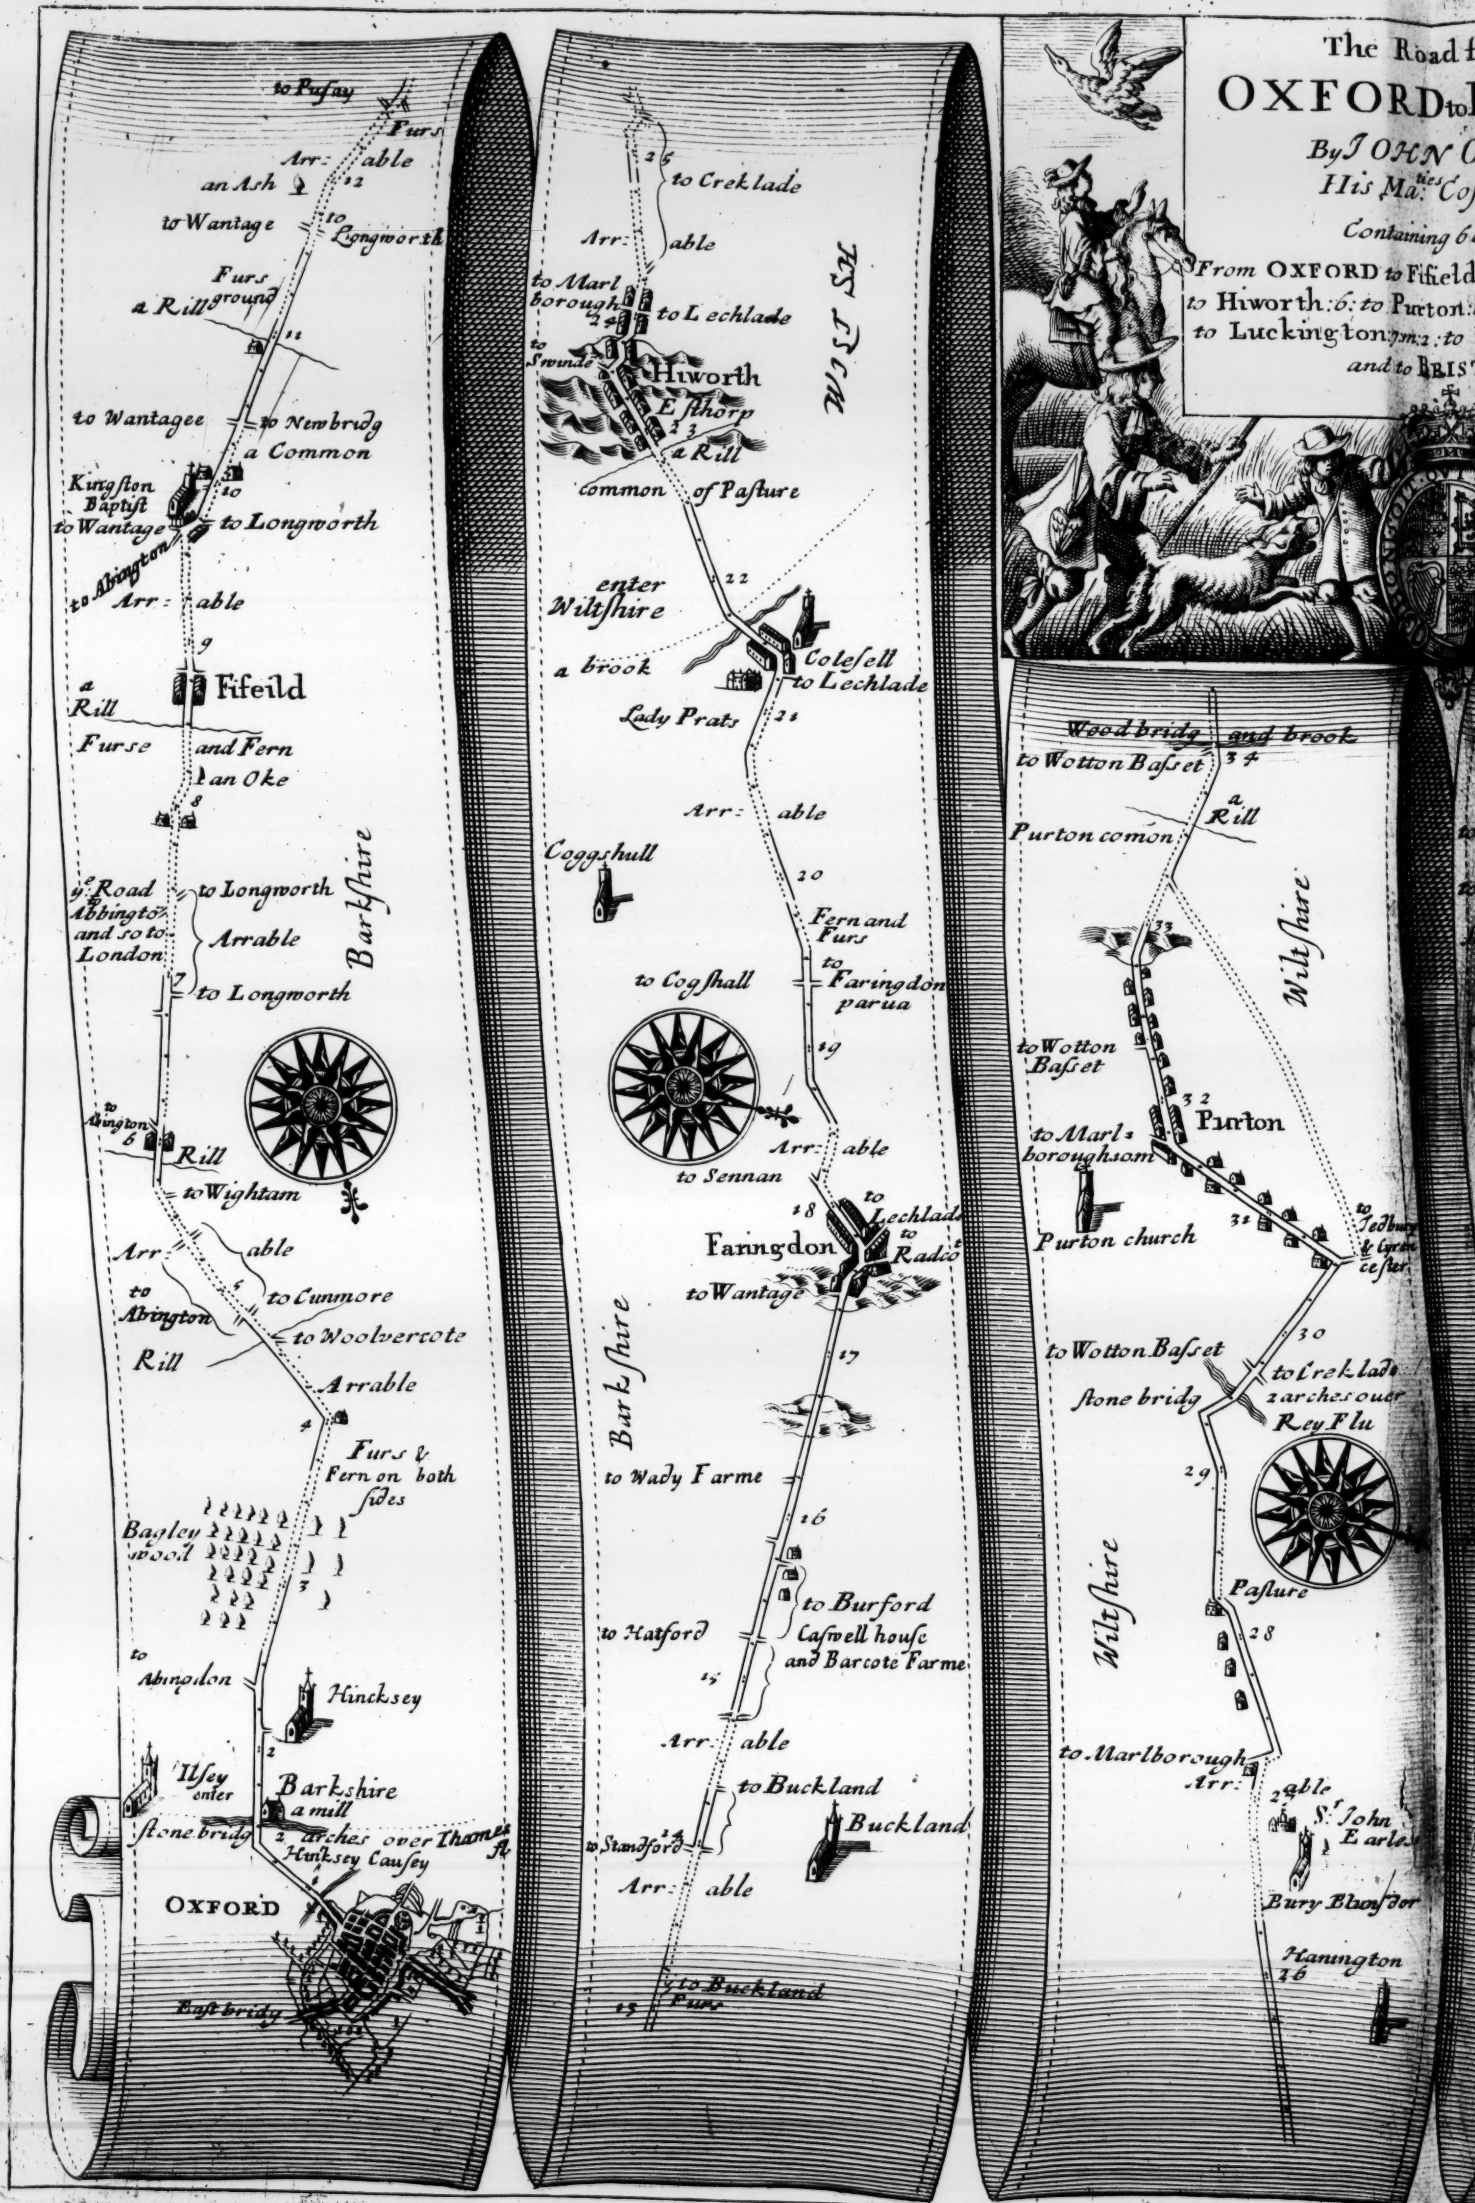 The Road f
OXFORD to
By JOHN O
His Ma:ties Cos
Containing 6
From OXFORD to Fifield
to Hiworth: 6: to Purton:
to Luckington: to
and to BRIS
to Pusay
Furs
Arr: able
an Ash
12
to Wantage
to Longworth
Furs ground
a Rill
11
to Wantagee
to Newbridg
a Common
Kingston
Baptist
10
to Wantage
to Longworth
to Abington
Arr: able
9
Fifeild
a
Rill
Furse and Fern
an Oke
8
ye Road
to
Abbingto
and so to
London
to Longworth
Arrable
Barkshire
7
to Longworth
to
Abington
6
Rill
to Wightam
Arr: able
5
to
Abington
to Cunmore
to Woolvercote
Rill
Arrable
4
Furs &
Fern on both
sides
Bagley
wood
3
to
Abingdon
Hincksey
2
Ilsey
enter Barkshire
a mill
stone bridg 2 arches over Thames
fl
Hinksey Causey
1
OXFORD
East bridg
25
to Creklade
Arr: able
to Marl
borough
24
to Lechlade
to
Swinde
Hiworth
Esthorp
23
a Rill
common of Pasture
WILTSH
22
enter
Wiltshire
a brook
Colesell
to Lechlade
Lady Prats
21
Arr: able
Coggshull
20
Fern and
Furs
to Cogshall
to
Faringdon
parua
19
Arr: able
to Sennan
18
to
Lechlade
to
Radcot
Faringdon
to Wantage
Barkshire
17
to Wady Farme
16
to Burford
to Hatford
Caswell house
and Barcote Farme
15
Arr: able
to Buckland
Buckland
14
to Standford
Arr: able
to Buckland
Furs
13
Wood bridg and brook
to Wotton Basset
34
a
Rill
Purton comon
33
Wiltshire
to Wotton
Basset
32
Purton
to Marl:
borough
Purton church
31
to
Tedbury
& Cyren
cester
30
to Wotton Basset
to Creklade
stone bridg 2 arches over
Rey Flu
29
Pasture
28
Wiltshire
to Marlborough
Arr: able
27
Sr John
Earles
Bury Blunsdon
Hanington
26